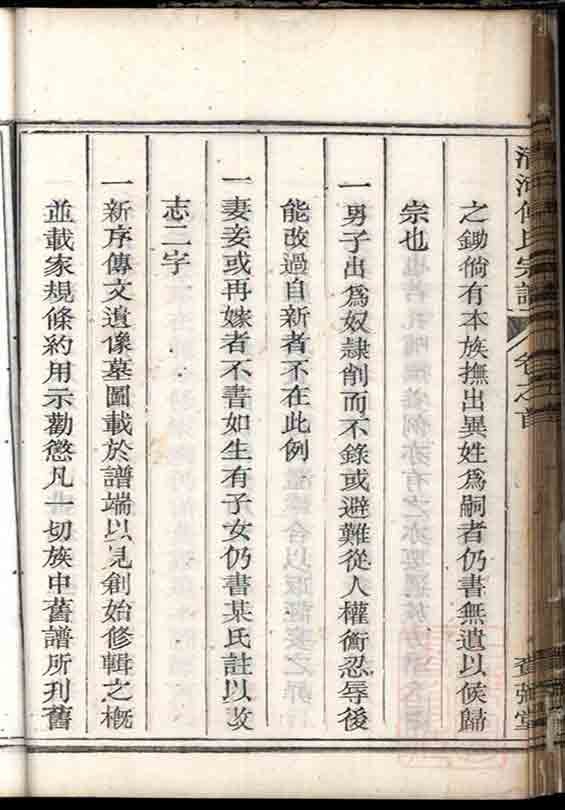 清河傅氏宗譜
卷之首
壹彌堂
之鋤倘有本族撫出異姓爲嗣者仍書無遺以俟歸
宗也
一男子出爲奴隷削而不錄或避難從人權衡忍辱後
能改過自新者不在此例
一妻妾或再嫁者不書如生有子女仍書某氏註以改
志二字
一新序傳文遺像墓圖載於譜端以見創始修輯之槪
並載家規條約用示勸懲凡一切族中舊譜所刊舊